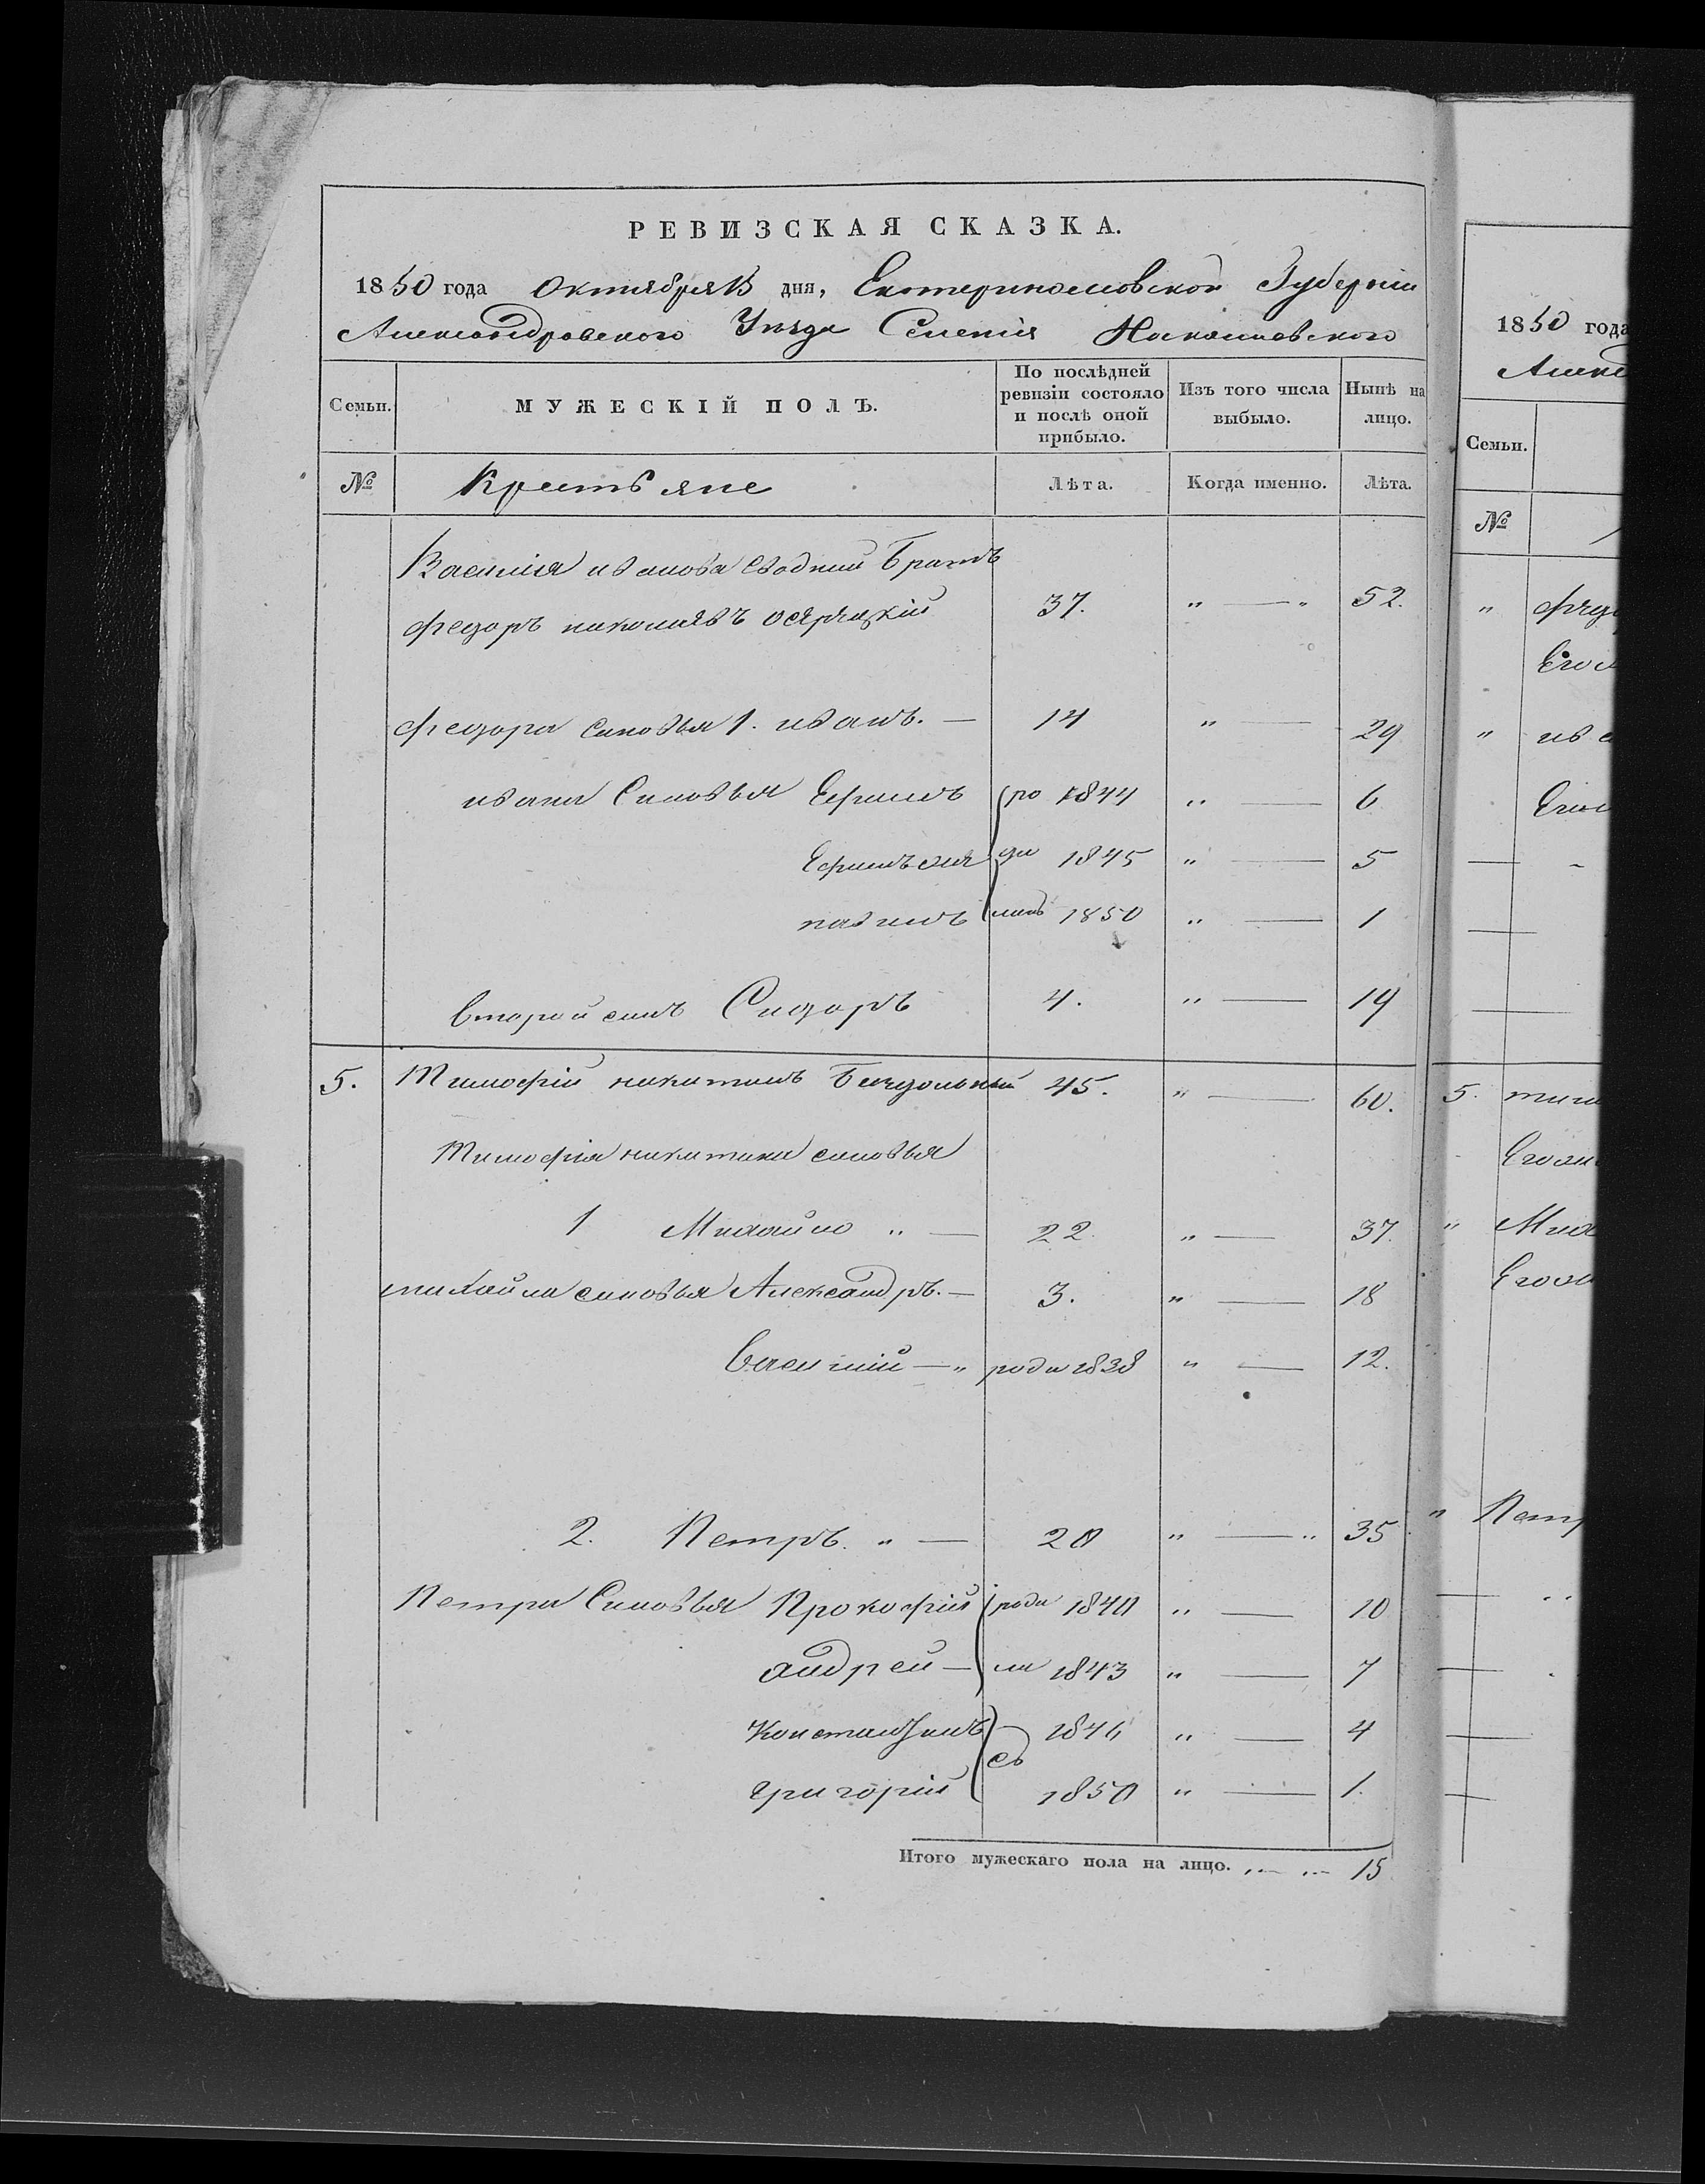 РЕВИЗСКАЯ СКАЗКА.
1850 года Октября 15 дня, Екатеринославской Губерніи
Александровского Уезда Селенія
Семьи. МУЖЕСКІЙ ПОЛЪ. По послѣдней ревизіи состояло и послѣ оной прибыло. Изъ того числа выбыло. Нынѣ на лицо.
№ Крестьяне Лѣта. Когда именно. Лѣта.
Василия иванова сводний Братъ
федоръ николаявъ 37. " — " 52.
федора синовья 1. иванъ. — 14 " — 29
ивана Синовья Ефимъ ро 1844 " — 6
ди 1845 " — 5
1850 " — 1
второй синъ Сидоръ 4. " — 19
5. Тимофій никитинъ 45. " — 60.
Тимофія никитина синовья
1 Михайло " — 22. " — 37.
михайла синовья Александръ. — 3. " — 18
василий — " роди 1838 " — 12.
2. Петръ. " — 20 " — " 35
Петра Синовья Прокофій роди 1840 " — 10
андрей — ли 1843 " — 7
Константинъ — 1846 " — 4
съ
григорій 1850 " — 1.
Итого мужескаго пола на лицо. 15
1850 года
Семьи.
№
5.